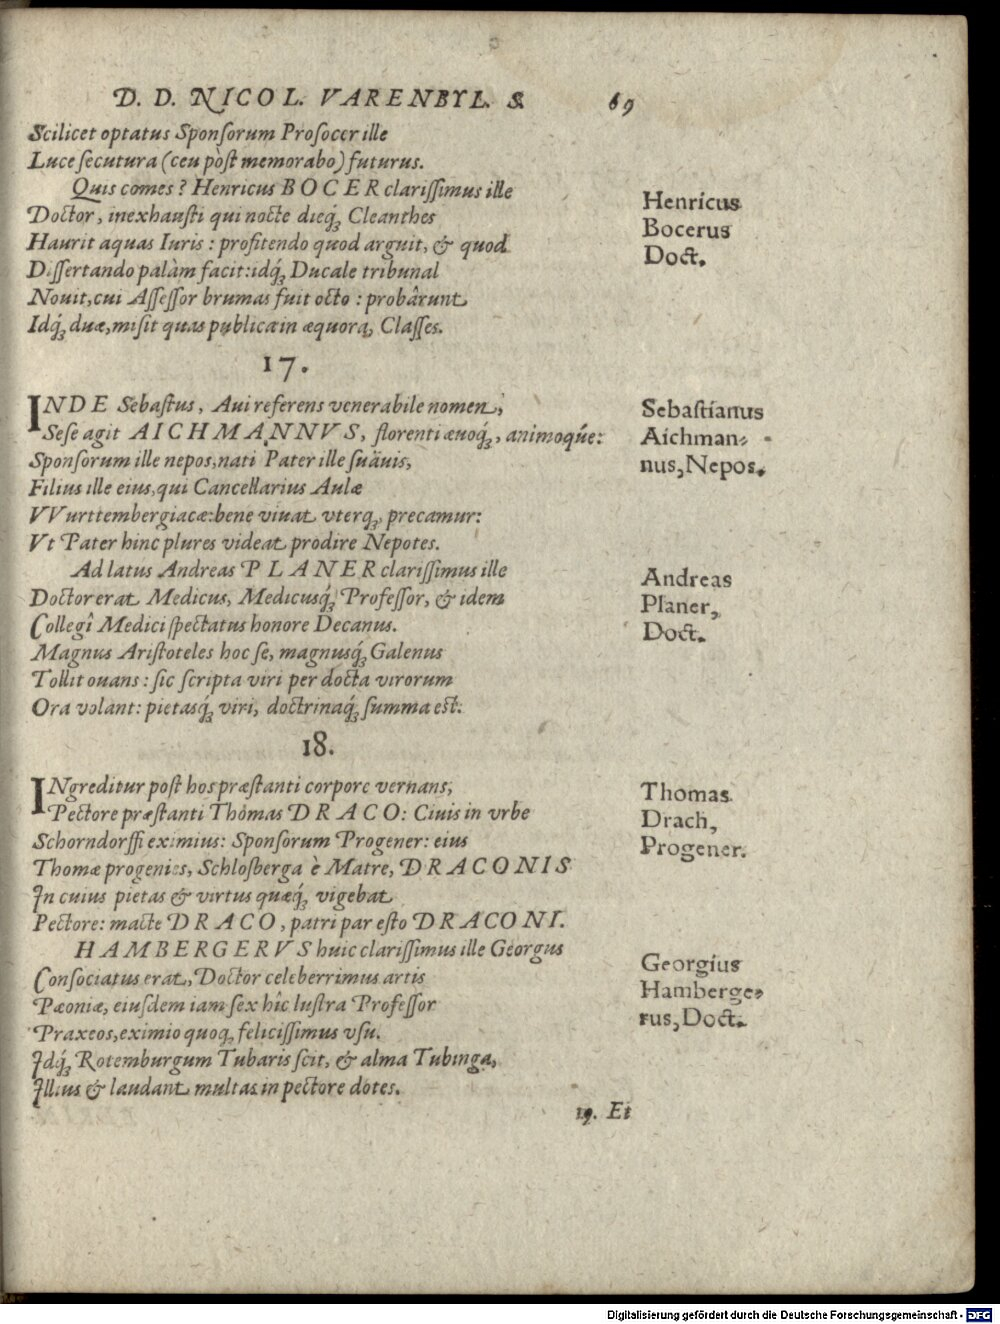 D. D. NICOL. VARENBYL. & 69
Scilicet optatus Sponſorum Proſocer ille
Luce ſecutura (ceu pòſt memorabo) futurus.
Quis comes? Henricus BOCER clariſſimus ille
Doctor, inexhauſti qui nocte dieq́ꝫ Cleanthes
Haurit aquas Iuris: profitendo quod arguit, & quod
Diſſertando palàm facit: idq́ꝫ Ducale tribunal
Nouit, cui Aſſeſſor brumas fuit octo: probârunt
Idq́ꝫ duæ, miſit quas publica in æquora, Claſſes.
Henricus
Bocerus
Doct.
17.
INDE Sebaſtus, Aui referens venerabile nomen,
Seſe agit AICHMANNVS, florenti æuoq́ꝫ, animoqúe:
Sponſorum ille nepos, nati Pater ille ſuäuis,
Filius ille eius, qui Cancellarius Aulæ
VVurttembergiacæ: bene viuat vterqꝫ, precamur:
Vt Pater hinc plures videat prodire Nepotes.
Sebaſtianus
Aichman-
nus, Nepos.
Ad latus Andreas PLANER clariſſimus ille
Doctor erat Medicus, Medicusq́ꝫ Profeſſor, & idem
Collegî Medici ſpectatus honore Decanus.
Magnus Ariſtoteles hoc ſe, magnusq́ꝫ Galenus
Tollit ouans: ſic ſcripta viri per docta virorum
Ora volant: pietasq́ꝫ viri, doctrinaq́ꝫ ſumma eſt.
Andreas
Planer,
Doct.
18.
INgreditur poſt hos præſtanti corpore vernans,
Pectore præſtanti Thomas DRACO: Ciuis in vrbe
Schorndorffi eximius: Sponſorum Progener: eius
Thomæ progenies, Schlosberga è Matre, DRACONIS
In cuius pietas & virtus quæq́ꝫ vigebat
Pectore: macte DRACO, patri par eſto DRACONI.
Thomas
Drach,
Progener.
HAMBERGERVS huic clariſſimus ille Georgus
Conſociatus erat, Doctor celeberrimus artis
Pæoniæ, eiuſdem iam ſex hîc luſtra Profeſſor
Praxeos, eximio quoqꝫ feliciſſimus vſu.
Idq́ꝫ Rotemburgum Tubaris ſcit, & alma Tubinga,
Illius & laudant multas in pectore dotes.
Georgius
Hamberge-
rus, Doct.
19. Et
Digitalisierung gefördert durch die Deutsche Forschungsgemeinschaft - DFG